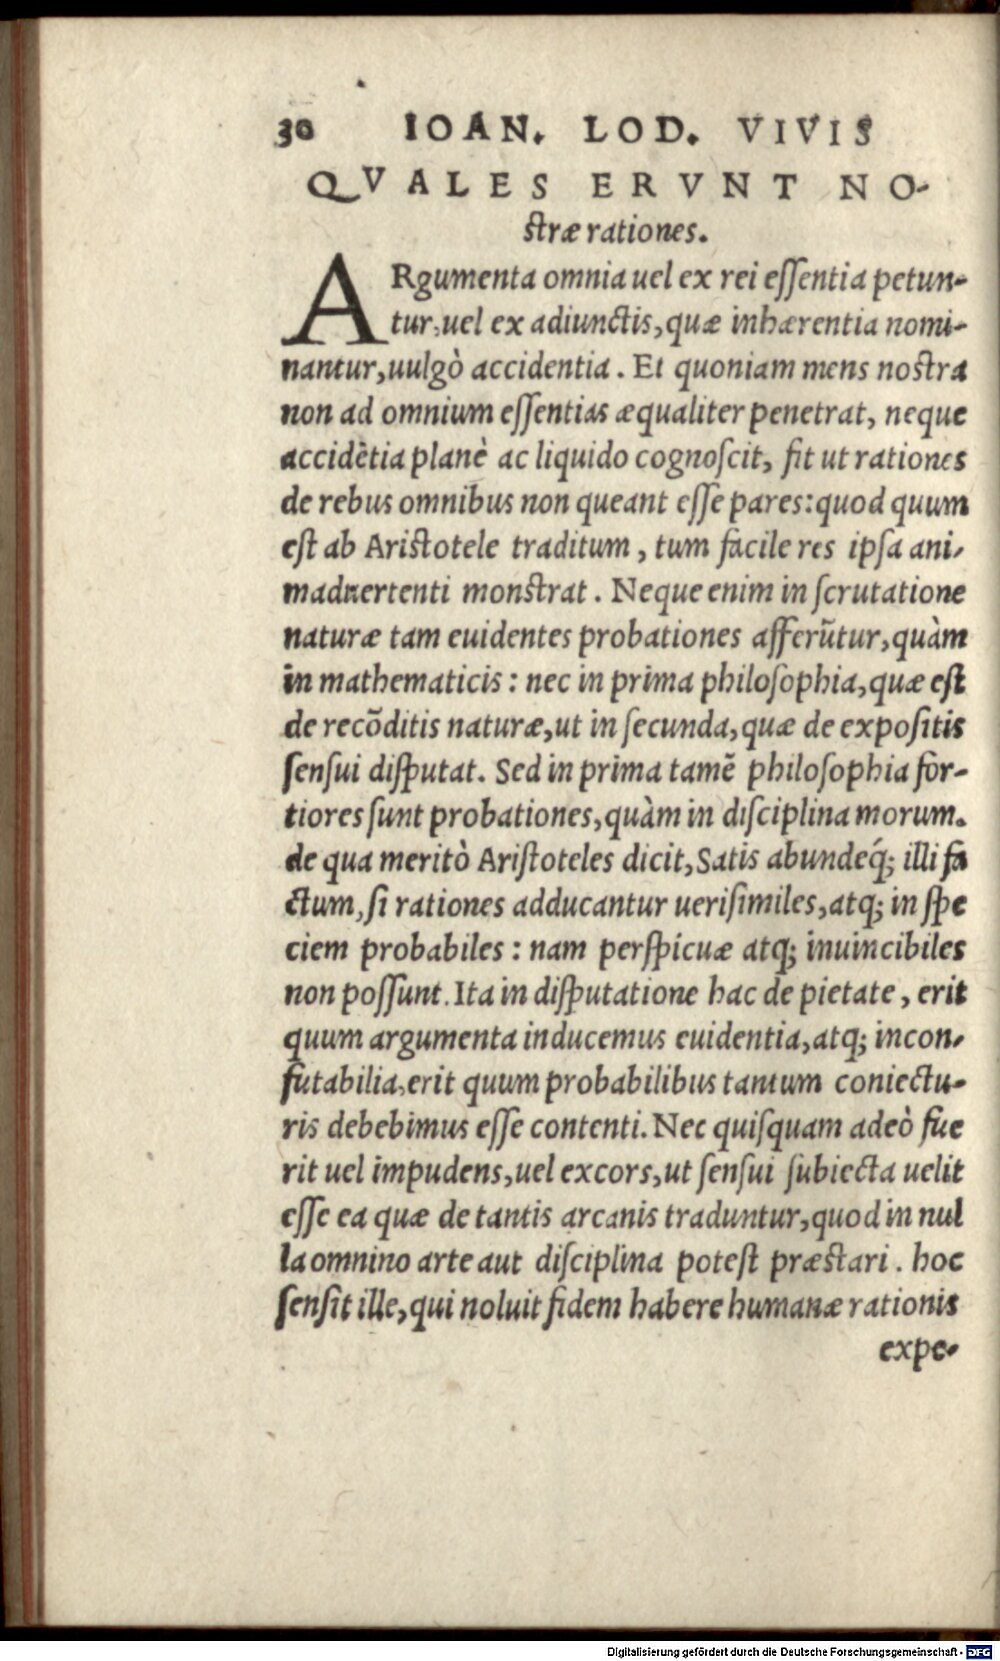 30 IOAN. LOD. VIVIS
QVALES ERVNT NO-
stræ rationes.
ARgumenta omnia uel ex rei essentia petun-
tur, uel ex adiunctis, quæ inhærentia nomi-
nantur, uulgò accidentia. Et quoniam mens nostra
non ad omnium essentias æqualiter penetrat, neque
accidẽtia planè ac liquido cognoscit, fit ut rationes
de rebus omnibus non queant esse pares: quod quum
est ab Aristotele traditum, tum facile res ipsa ani-
maduertenti monstrat. Neque enim in scrutatione
naturæ tam euidentes probationes afferũtur, quàm
in mathematicis: nec in prima philosophia, quæ est
de recõditis naturæ, ut in secunda, quæ de expositis
sensui disputat. Sed in prima tamẽ philosophia for-
tiores sunt probationes, quàm in disciplina morum.
de qua meritò Aristoteles dicit, Satis abundeq́; illi fa
ctum, si rationes adducantur uerisimiles, atq; in spe
ciem probabiles: nam perspicuæ atq; inuincibiles
non possunt. Ita in disputatione hac de pietate, erit
quum argumenta inducemus euidentia, atq; incon-
futabilia, erit quum probabilibus tantum coniectu-
ris debebimus esse contenti. Nec quisquam adeò fue
rit uel impudens, uel excors, ut sensui subiecta uelit
esse ea quæ de tantis arcanis traduntur, quod in nul
la omnino arte aut disciplina potest præstari. hoc
sensit ille, qui noluit fidem habere humanæ rationis
expe-
Digitalisierung gefördert durch die Deutsche Forschungsgemeinschaft - DFG